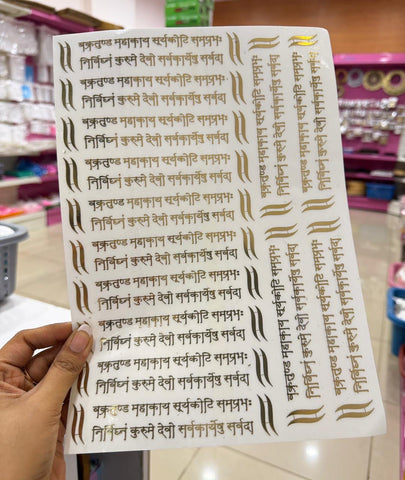 बक्रतुण्ड महाकाय सूर्यकोटि समप्रभः
निर्विघ्नं कुरुमे देवो सर्वकार्येषु सर्वदा
बक्रतुण्ड महाकाय सूर्यकोटि समप्रभः
निर्विघ्नं कुरुमे देवो सर्वकार्येषु सर्वदा
बक्रतुण्ड महाकाय सूर्यकोटि समप्रभः
निर्विघ्नं कुरुमे देवो सर्वकार्येषु सर्वदा
बक्रतुण्ड महाकाय सूर्यकोटि समप्रभः
निर्विघ्नं कुरुमे देवो सर्वकार्येषु सर्वदा
बक्रतुण्ड महाकाय सूर्यकोटि समप्रभः
निर्विघ्नं कुरुमे देवो सर्वकार्येषु सर्वदा
बक्रतुण्ड महाकाय सूर्यकोटि समप्रभः
निर्विघ्नं कुरुमे देवो सर्वकार्येषु सर्वदा
बक्रतुण्ड महाकाय सूर्यकोटि समप्रभः
निर्विघ्नं कुरुमे देवो सर्वकार्येषु सर्वदा
बक्रतुण्ड महाकाय सूर्यकोटि समप्रभः
निर्विघ्नं कुरुमे देवो सर्वकार्येषु सर्वदा
बक्रतुण्ड महाकाय सूर्यकोटि समप्रभः
निर्विघ्नं कुरुमे देवो सर्वकार्येषु सर्वदा
बक्रतुण्ड महाकाय सूर्यकोटि समप्रभः
निर्विघ्नं कुरुमे देवो सर्वकार्येषु सर्वदा
बक्रतुण्ड महाकाय सूर्यकोटि समप्रभः
निर्विघ्नं कुरुमे देवो सर्वकार्येषु सर्वदा
बक्रतुण्ड महाकाय सूर्यकोटि समप्रभः
निर्विघ्नं कुरुमे देवो सर्वकार्येषु सर्वदा
बक्रतुण्ड महाकाय सूर्यकोटि समप्रभः
निर्विघ्नं कुरुमे देवो सर्वकार्येषु सर्वदा
बक्रतुण्ड महाकाय सूर्यकोटि समप्रभः
निर्विघ्नं कुरुमे देवो सर्वकार्येषु सर्वदा